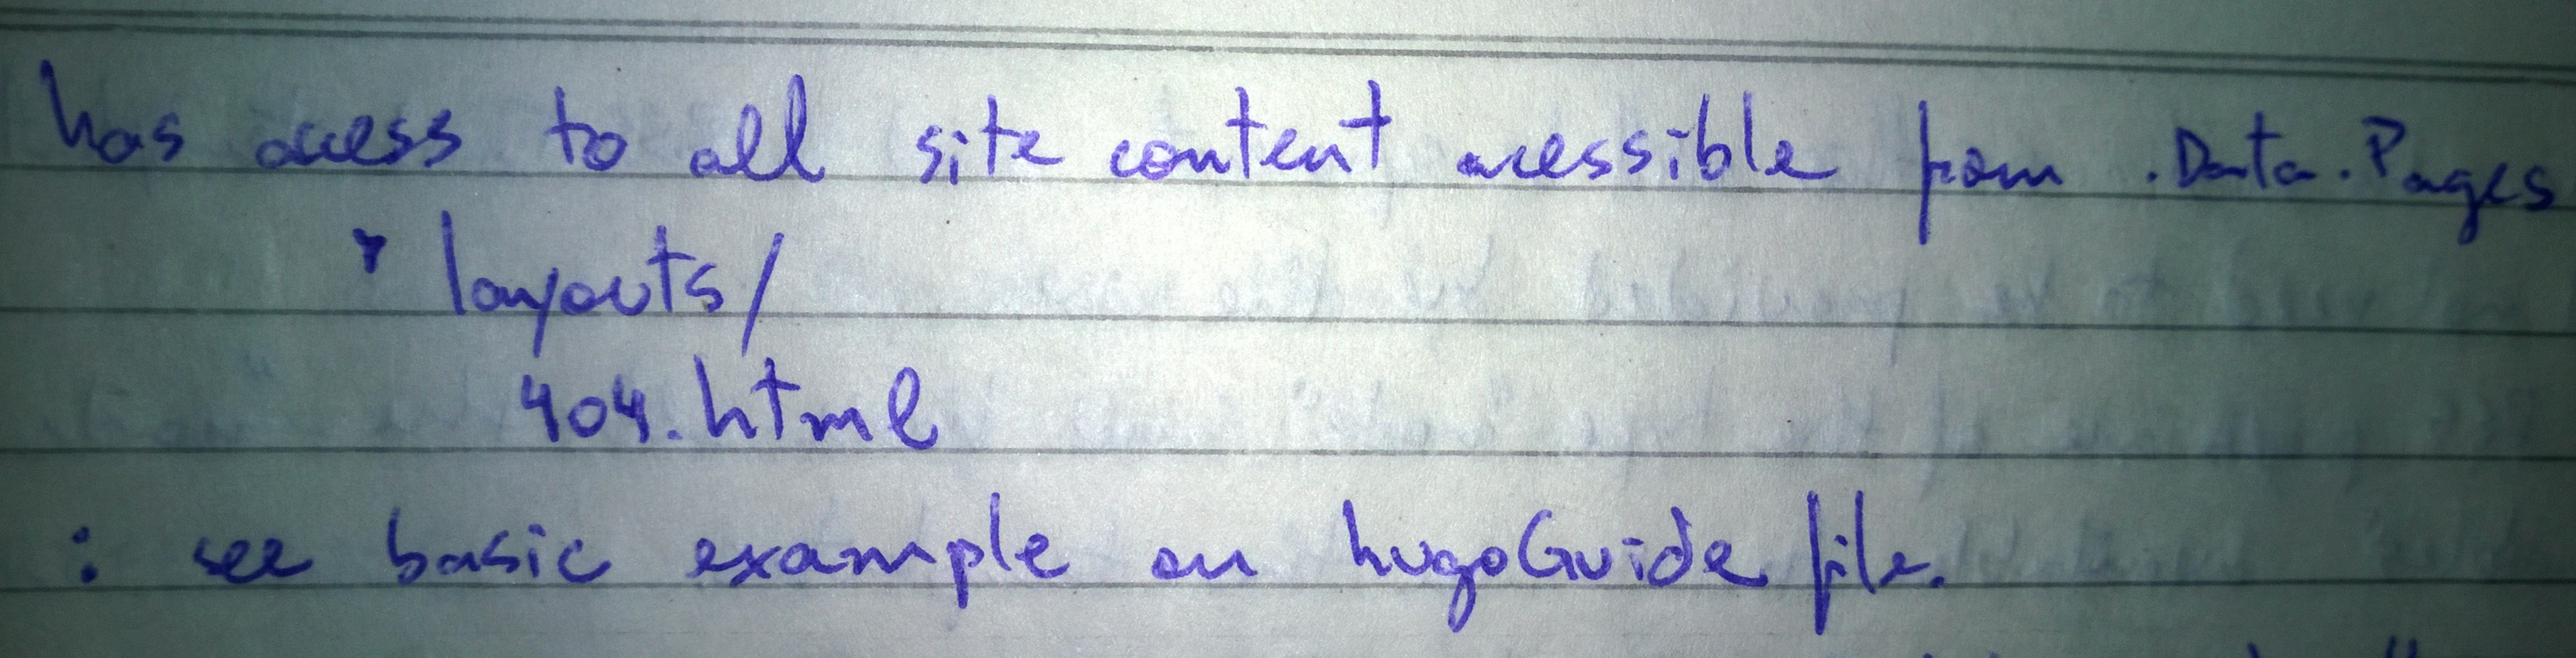 has acess to all site content acessible from .Data.Pages
layouts/
404.html
: see basic example on hugoGuide file.